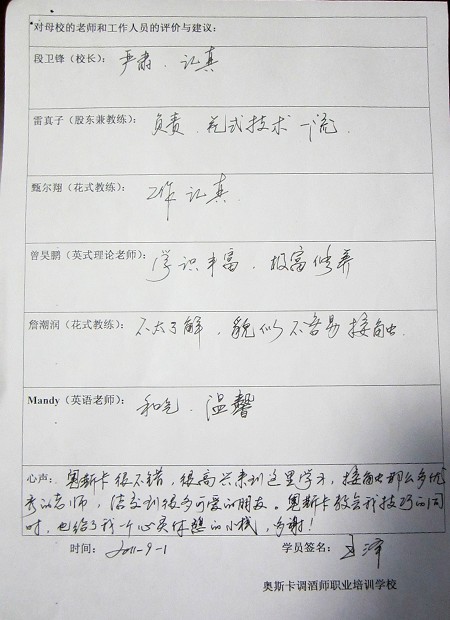 对母校的老师和工作人员的评价与建议：
段卫锋（校长）： 严肃、认真
雷真子（股东兼教练）： 负责、花式技术一流.
甄尔翔（花式教练）： 工作认真
曾昊鹏（英式理论老师）： 学识丰富、极富修养
詹潮润（花式教练）： 不太了解，貌似不容易接触.
Mandy（英语老师）： 和气、温馨
心声： 奥斯卡很不错，很高兴来到这里学习，接触那么多优
秀的老师，结交到很多可爱的朋友。奥斯卡教会我技巧的同
时，也给了我一个心灵休憩的小栈，多谢！
时间： 2011-9-1 学员签名： 王泽
奥斯卡调酒师职业培训学校